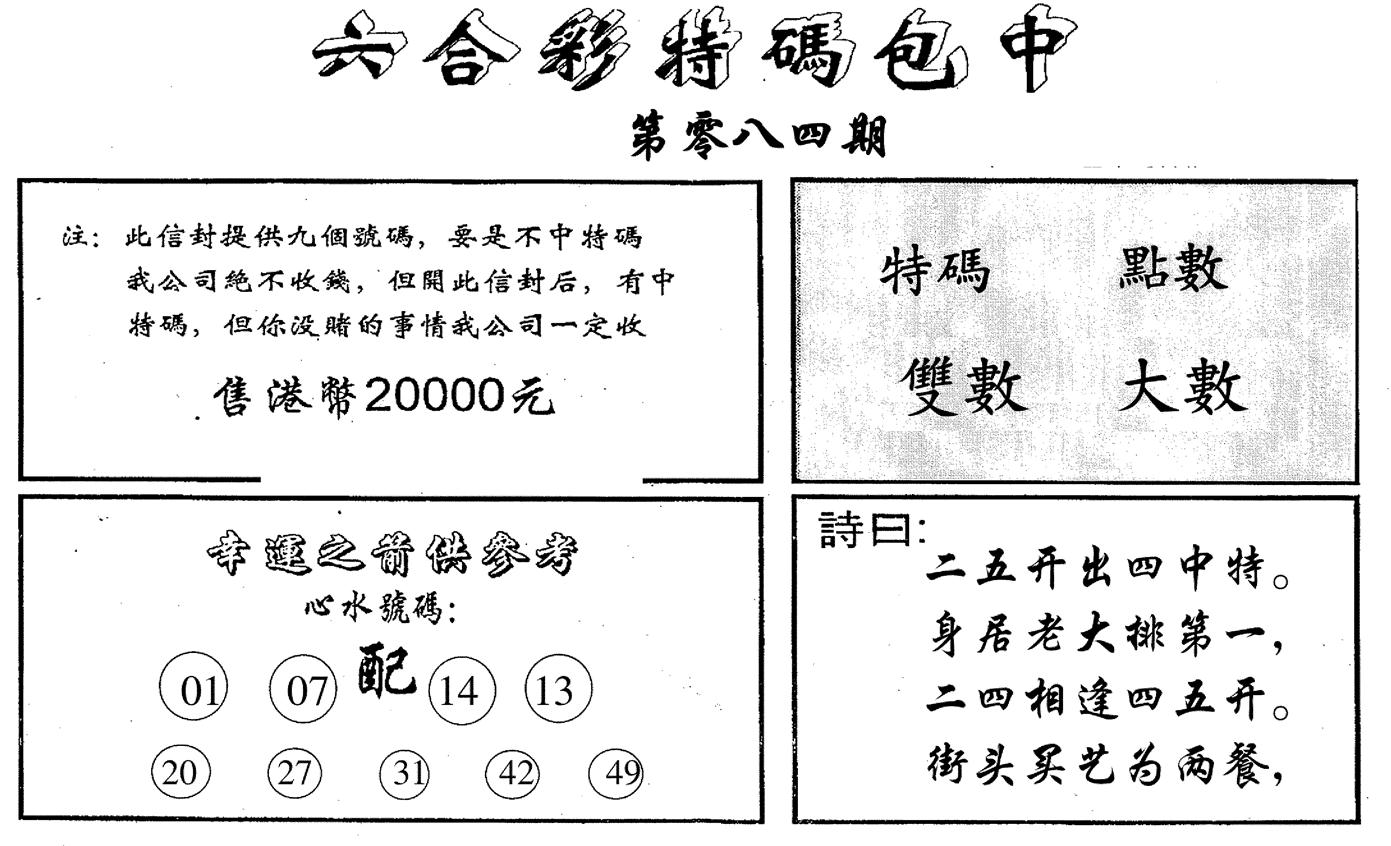 六合彩特碼包中
第零八四期
注：此信封提供九個號碼，要是不中特碼
我公司絕不收錢，但開此信封后，有中
特碼，但你没賭的事情我公司一定收
售港幣20000元
特碼 點數
雙數 大數
幸運之箭供參考
心水號碼：
01 07 配 14 13
20 27 31 42 49
詩曰：
二五开出四中特。
身居老大排第一，
二四相逢四五开。
街头买艺为两餐，